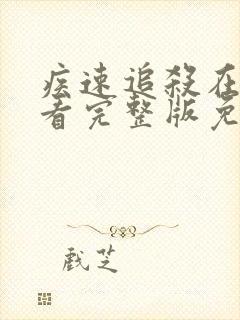 疾速追殺在
看完整版免
戲芝